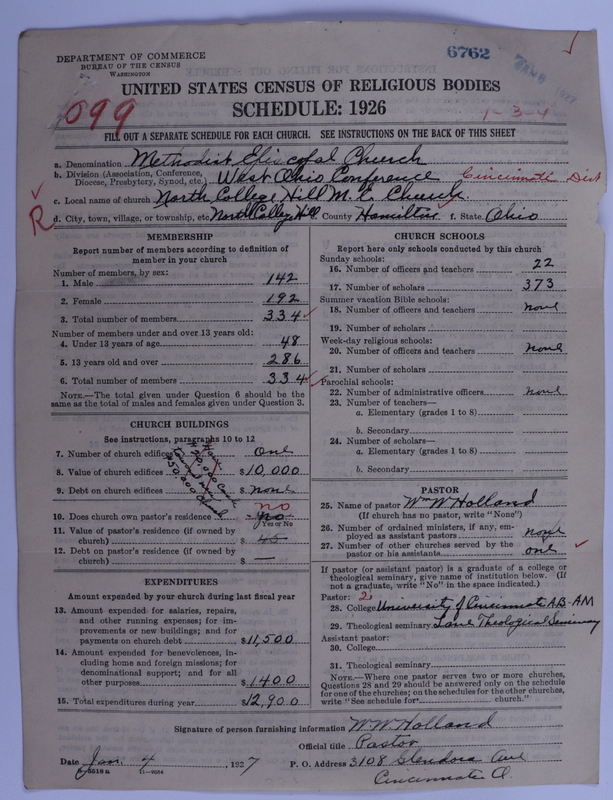 DEPARTMENT OF COMMERCE
BUREAU OF THE CENSUS
WASHINGTON
6762
UNITED STATES CENSUS OF RELIGIOUS BODIES
SCHEDULE: 1926
099
1-3-4
FILL OUT A SEPARATE SCHEDULE FOR EACH CHURCH. SEE INSTRUCTIONS ON THE BACK OF THIS SHEET
a. Denomination Methodist Episcopal Church
b. Division (Association, Conference, Diocese, Presbytery, Synod, etc.) West Ohio Conference Cincinnati Dist
c. Local name of church North College Hill M. E. Church
R
d. City, town, village, or township, etc. North College Hill e. County Hamilton f. State Ohio
MEMBERSHIP
Report number of members according to definition of
member in your church
Number of members, by sex:
1. Male 142
2. Female 192
3. Total number of members 334
Number of members under and over 13 years old:
4. Under 13 years of age 48
5. 13 years old and over 286
6. Total number of members 334
NOTE.—The total given under Question 6 should be
same as the total of males and females given under Question 3.
CHURCH BUILDINGS
See instructions, paragraphs 10 to 12
7. Number of church edifices One
8. Value of church edifices $10,000
9. Debt on church edifices $ None
Have
$20,000 cash
toward new
$50,000 church
no
10. Does church own pastor's residence no
Yes or No
11. Value of pastor's residence (if owned by
church) $ 45
12. Debt on pastor's residence (if owned by
church) $ —
EXPENDITURES
Amount expended by your church during last fiscal year
13. Amount expended for salaries, repairs,
and other running expenses; for im-
provements or new building; and for
payments on church debt $11,500
14. Amount expended for benevolences, in-
cluding home and foreign missions; for
denominational support; and for all
other purposes $1400
15. Total expenditures during year $12,900
CHURCH SCHOOLS
Report here only schools conducted by this church
Sunday schools:
16. Number of officers and teachers 22
17. Number of scholars 373
Summer vacation Bible schools:
18. Number of officers and teachers none
19. Number of scholars
Week-day religious schools:
20. Number of officers and teachers none
21. Number of scholars
Parochial schools:
22. Number of administrative officers none
23. Number of teachers—
a. Elementary (grades 1 to 8)
b. Secondary
24. Number of scholars—
a. Elementary (grades 1 to 8)
b. Secondary
PASTOR
25. Name of pastor Wm W Holland
(If church has no pastor, write "None")
26. Number of ordained ministers, if any, em-
ployed as assistant pastors none
27. Number of other churches served by the
pastor or his assistants one
If pastor (or assistant pastor) is a graduate of a college or
theological seminary, give name of institution below. (If
not a graduate, write "No" in the space indicated.)
Pastor: 2
28. College University of Cincinnati A.B.-A.M
29. Theological seminary Lane Theological Seminary
Assistant pastor:
30. College
31. Theological seminary
NOTE.—Where one pastor serves two or more churches,
Questions 28 and 29 should be answered only on the schedule
for one of the churches; on the schedules for the other churches,
write "See schedule for church."
Signature of person furnishing information W W Holland
Official title Pastor
Date Jan. 4, 1927 P. O. Address 3108 Glendora Ave
8-5518a 11-9054
Cincinnati O.